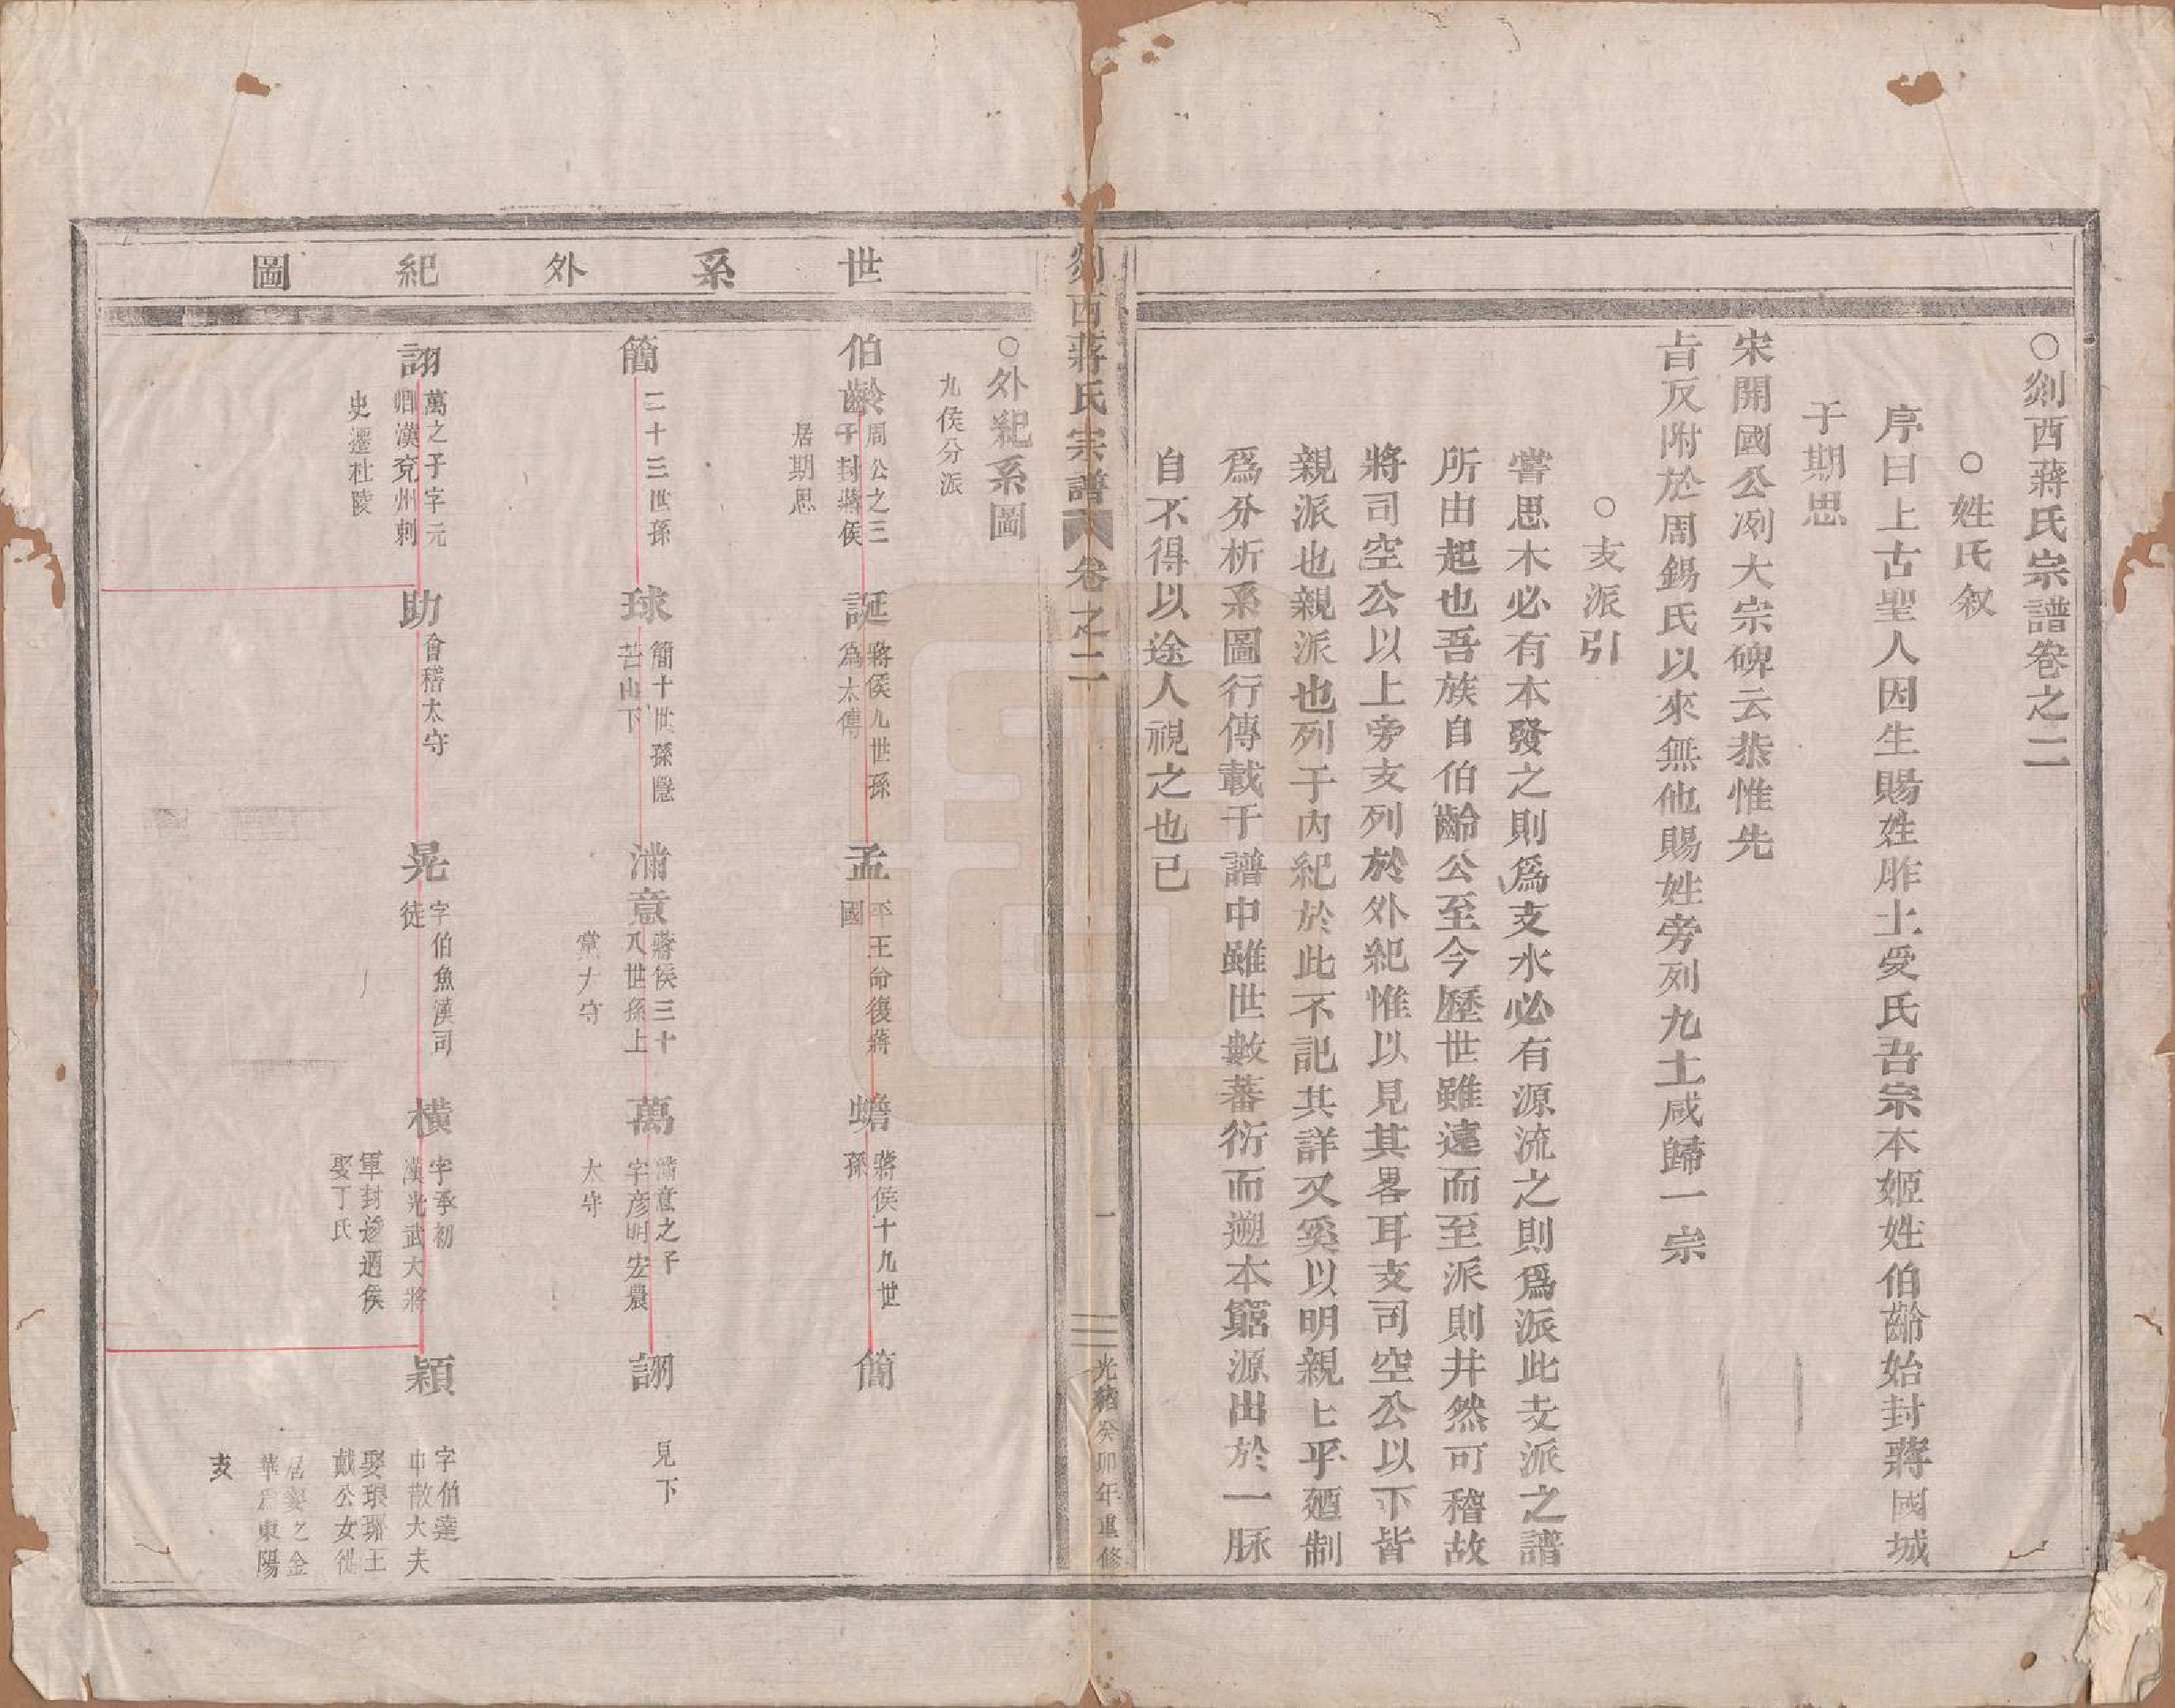 ○剡西蔣氏宗譜卷之二
○姓氏叙
序曰上古聖人因生賜姓胙土受氏吾宗本姬姓伯齡始封蔣國城
于期思
宋開國公冽大宗碑云恭惟先
㫖反附於周錫氏以來無他賜姓旁列九土咸歸一宗
○支派引
嘗思木必有本發之則爲支水必有源流之則爲派此支派之譜
所由起也吾族自伯齡公至今歷世雖遠而至派則井然可稽故
將司空公以上旁支列於外紀惟以見其畧耳支司空公以下皆
親派也親派也列于內紀於此不記其詳又奚以明親上乎廼制
爲分析系圖行傳載于譜中雖世數蕃衍而遡本窮源出於一脉
自不得以途人視之也已
剡西蔣氏宗譜 卷之二 一 光緒癸卯年重修
世系外紀圖
○外紀系圖
九侯分派
伯齡 周公之三
子封蔣侯
居期思
誕 蔣侯九世孫
為太傅
孟 平王命復蔣
國
蟾 蔣侯十九世
孫
簡
簡 二十三世孫
球 簡十世孫隱
苦山下
滿意 蔣侯三十
八世孫上
黨大守
萬 滿意之子
字彥明宏農
太守
詡 見下
詡 萬之子字元
卿漢兖州刺
史遷杜陵
助 會稽太守
晃 字伯魚漢司
徒
橫 字承初
漢光武大將
軍封逡遒侯
娶丁氏
穎 字伯達
中散大夫
娶琅琊王
戴公女徙
居婺之金
華爲東陽
支